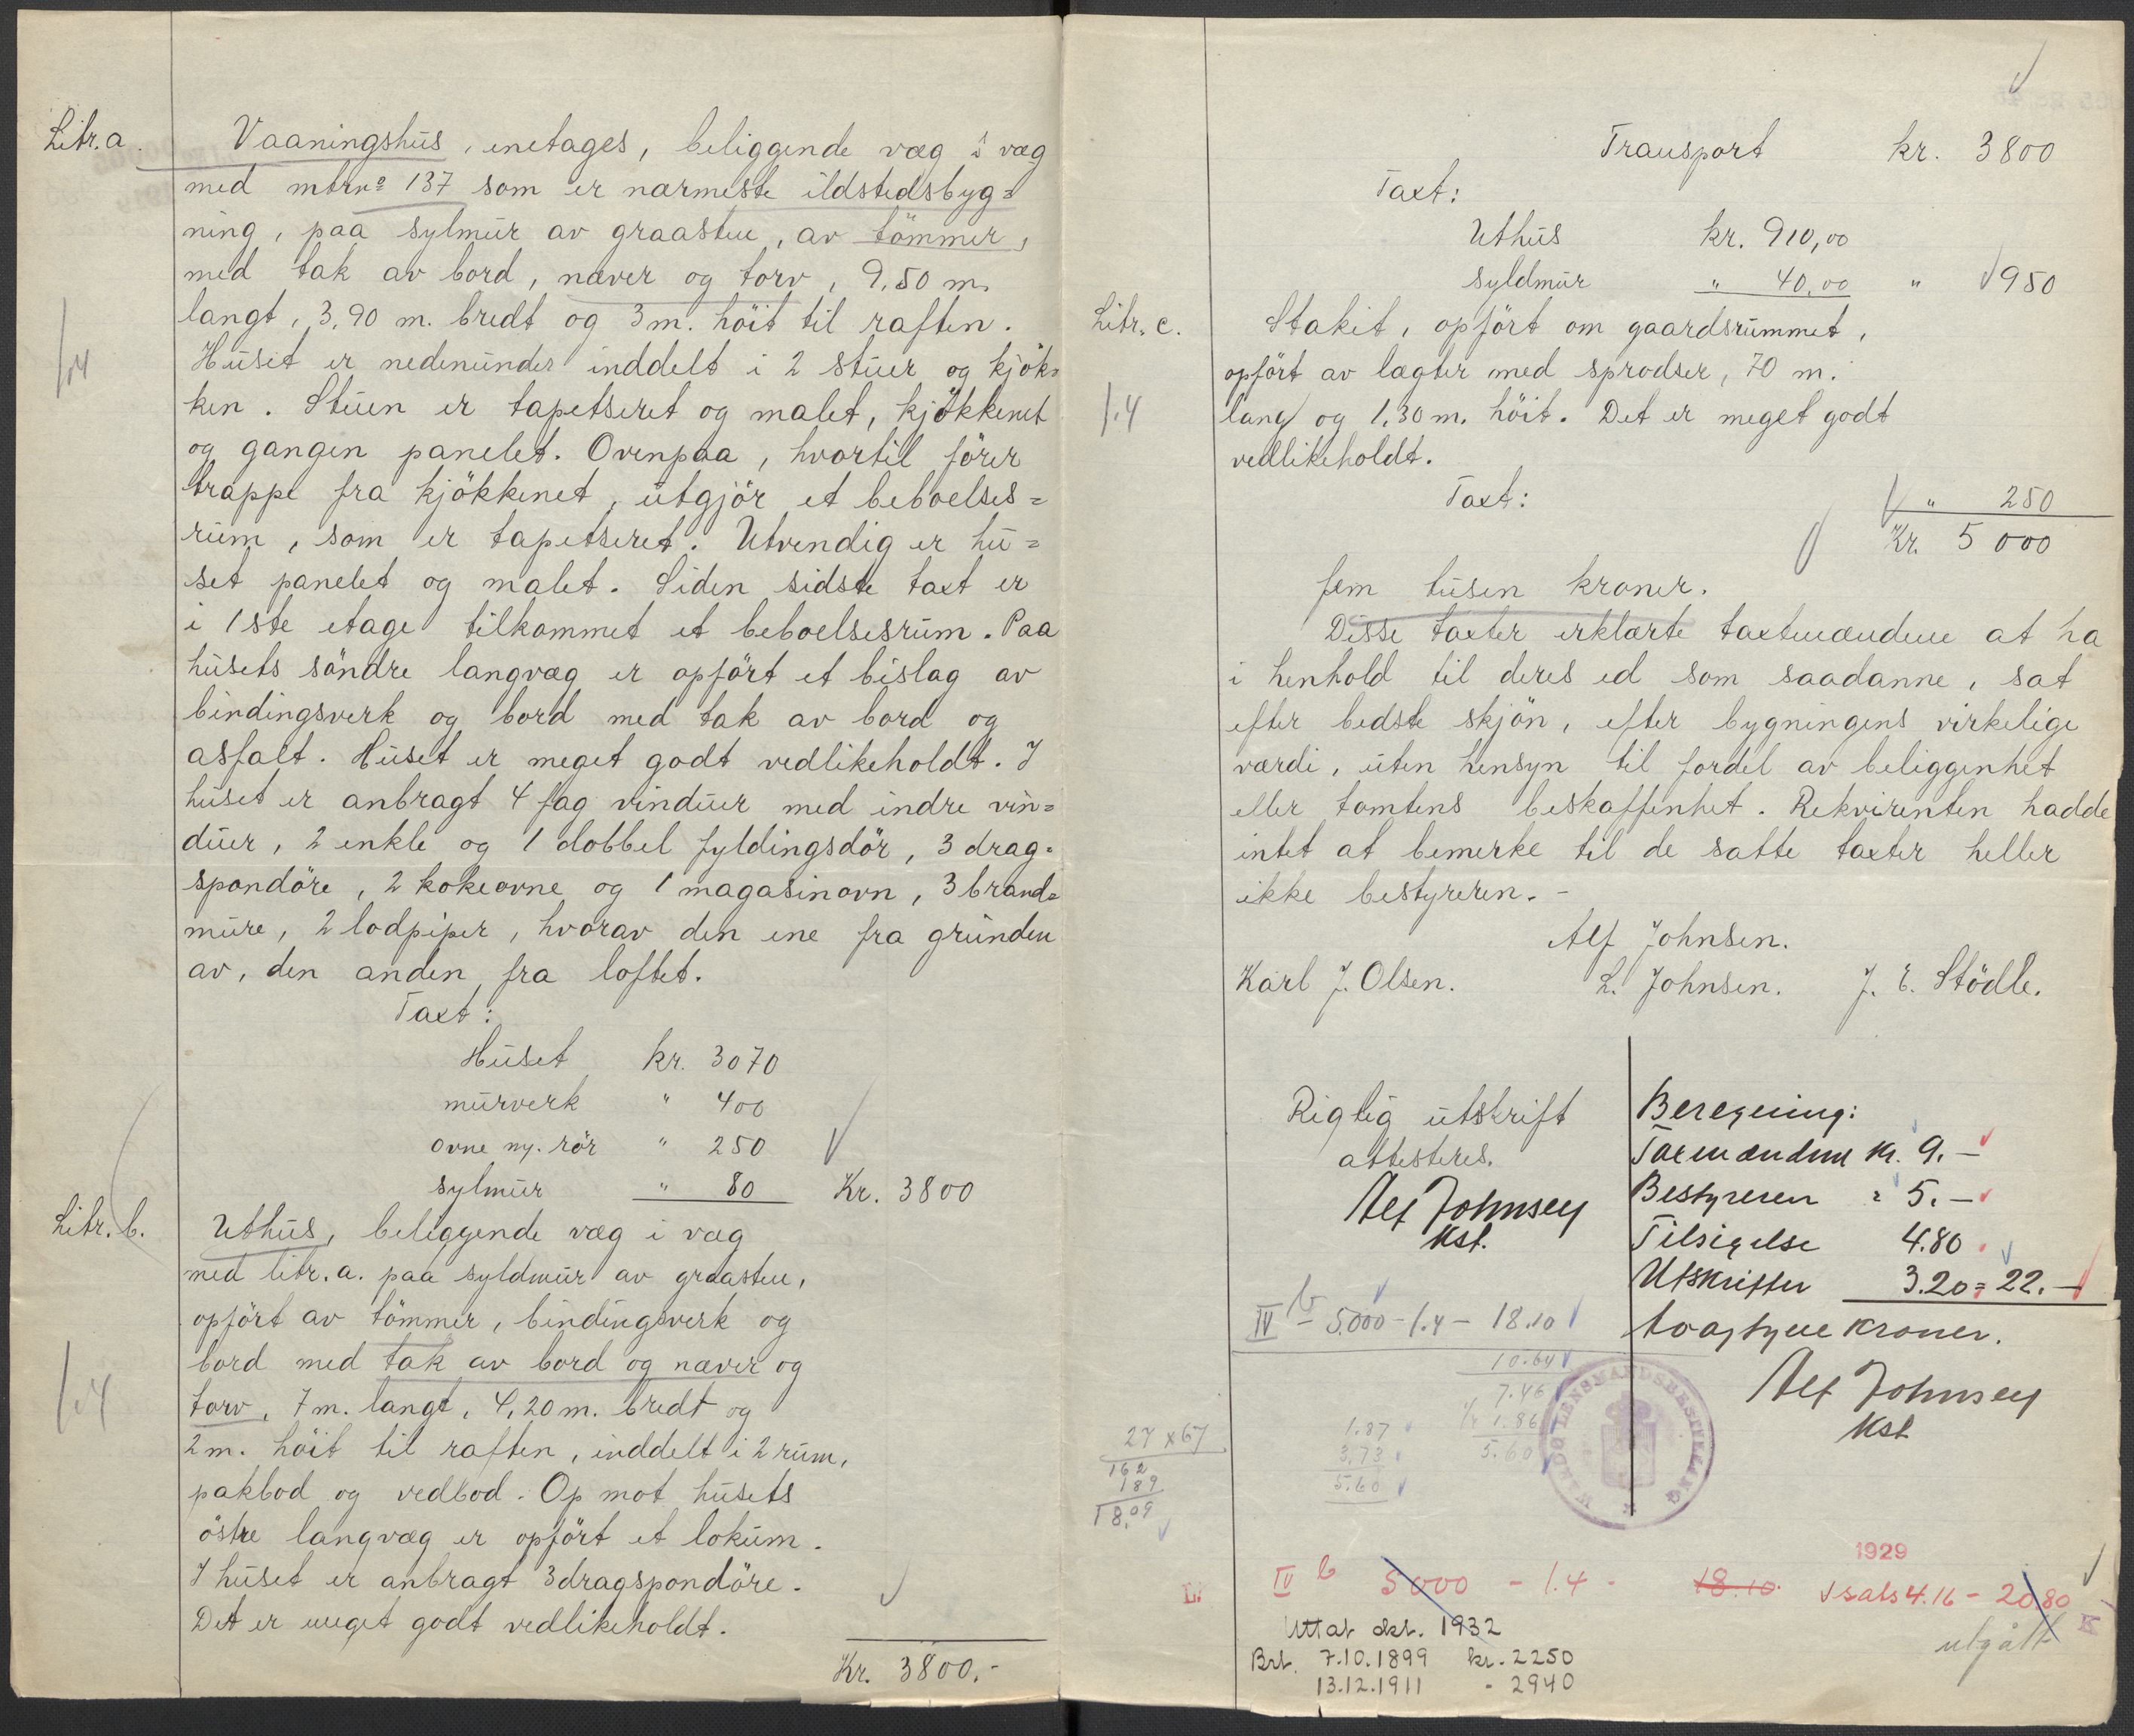 Litr. a.
Vaaningshus, enetages, beliggende væg i væg
med mtrnº 137 som er nærmeste ildstedsbyg=
ning, paa sylmur av graasten, av tömmer,
med tak av bord, næver og torv, 9,50 m.
langt, 3,90 m. bredt og 3 m. höit til raften.
Huset er nedenunder inddelt i 2 stuer og kjök=
1.4
ken. Stuen er tapetseret og malet, kjökkenet
og gangen panelet. Ovenpaa, hvortil förer
trappe fra kjökkenet, utgjör et beboelses=
rum, som er tapetseret. Utvendig er hu=
set panelet og malet. Siden sidste taxt er
i 1ste etage tilkommet et beboelsesrum. Paa
husets söndre langvæg er opfört et bislag av
bindingsverk og bord med tak av bord og
asfalt. Huset er meget godt vedlikeholdt. I
huset er anbragt 4 fag vinduer med indre vin=
duer, 2 enkle og 1 dobbel fyldingsdör, 3 drag=
spondöre, 2 kokeovne og 1 magasinovn, 3 brand=
mure, 2 lodpiper, hvorav den ene fra grunden
av, den anden fra loftet.
Taxt:
Huset kr. 3070
murverk " 400
ovne m. rör " 250
sylmur " 80 Kr. 3800
Litr. b.
Uthus, beliggende væg i væg
med litr. a. paa syldmur av graasten,
opfört av tömmer, bindingsverk og
bord med tak av bord og næver og
1.4
torv, 7 m. langt, 4,20 m. bredt og
2 m. höit til raften, inddelt i 2 rum,
pakbod og vedbod. Op mot husets
östre langvæg er opfört et lokum.
I huset er anbragt 3 dragspondöre.
Det er meget godt vedlikeholdt.
Kr. 3800.-
Transport kr. 3800
Taxt:
Uthus kr. 910,00
Syldmur " 40,00 " 950
Litr. c.
Stakit, opfört om gaardsrummet,
opfört av lægter med sprodser, 70 m.
1.4
lang og 1,30 m. höit. Det er meget godt
vedlikeholdt.
Taxt: " 250
Kr. 5000
fem tusen kroner.
Disse taxter erklærte taxtmændene at ha
i henhold til deres ed som saadanne, sat
efter bedste skjön, efter bygningens virkelige
værdi, uten hensyn til fordel av beliggenhet
eller tomtens beskaffenhet. Rekvirenten hadde
intet at bemerke til de satte taxter heller
ikke bestyreren.-
Alf Johnsen.
Karl J. Olsen. L. Johnsen. J. E. Stödle.
Rigtig utskrift
attesteres.
Alf Johnsen
Kst.
Beregning:
Taxmændene kr. 9.-
Bestyreren " 5.-
Tilsigelse 4.80
Utskrifter 3.20 = 22.-
toogtyve kroner.
Alf Johnsen
Kst
IV b 5.000 - 1.4 - 18.10
10.64
7.46
1/4 1.86
5.60
1.87
3.73
5.60
27 x 67
162
189
18,09
LENSMANDSBESTILLING
1929
IV b 5000 - 1.4 - 18.10 sats 4.16 - 20.80
Uttat okt. 1932
utgått
Brt. 7.10.1899 kr. 2250
13.12.1911 - 2940